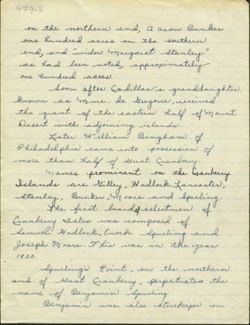 4793
on the northern end, Aaron Bunker
one hundred acres on the southern
end, and "widow Margaret Stanley"
as had been noted, approximately
one hundred acres.
Soon after Cadillac's granddaughter,
known as Mme. de Gregoire, received
the grant of the eastern half of Mount
Desert with adjoining islands.
Later William Bingham of
Philadelphia came into possession of
more than half of Great Cranberry.
Names prominent on the Cranberry
Islands are Gilley, Hadlock, Lancaster,
Stanley, Bunker, Moore and Spurling.
The first board of selectmen of
Cranberry Isles was composed of
Samuel Hadlock, Enoch Spurling and
Joseph Moore. This was in the year
1830.
Spurling's Point, on the northern
end of Great Cranberry, perpetuates the
name of Benjamin Spurling.
Benjamin was also storekeeper on